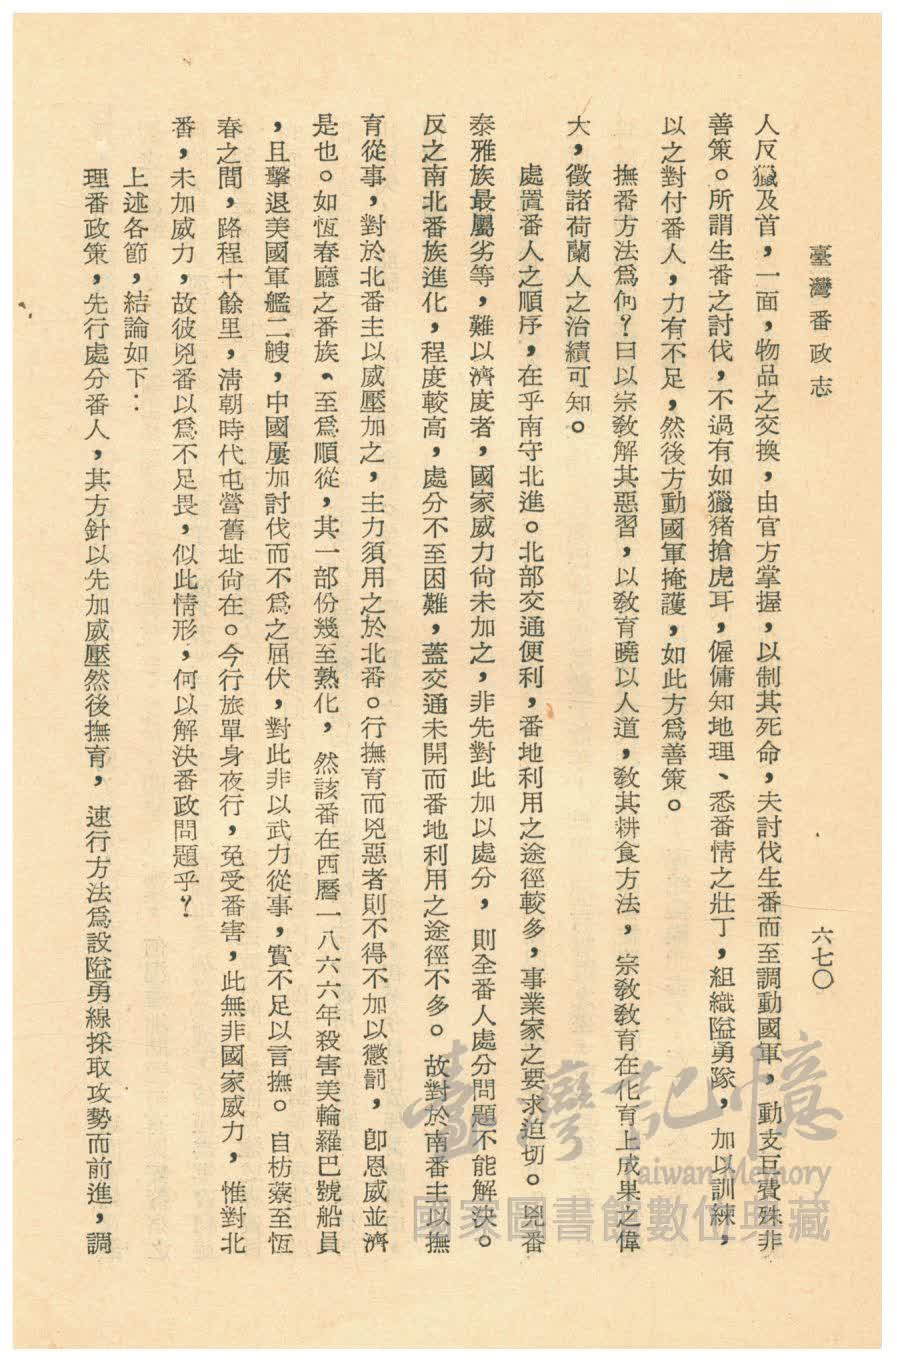 臺灣番政志
六七〇
人反獵及首，一面，物品之交換，由官方掌握，以制其死命，夫討伐生番而至調動國軍，動支巨費殊非
善策。所謂生番之討伐，不過有如獵猪搶虎耳，僱傭知地理、悉番情之壯丁，組織隘勇隊，加以訓練，
以之對付番人，力有不足，然後方動國軍掩護，如此方爲善策。
撫番方法爲何？曰以宗教解其惡習，以敎育曉以人道，敎其耕食方法，宗敎敎育在化育上成果之偉
大，徵諸荷蘭人之治績可知。
處置番人之順序，在乎南守北進。北部交通便利，番地利用之途徑較多，事業家之要求迫切。兇番
泰雅族最屬劣等，難以濟度者，國家威力尙未加之，非先對此加以處分，則全番人處分問題不能解決。
反之南北番族進化，程度較高，處分不至困難，蓋交通未開而番地利用之途徑不多。故對於南番主以撫
育從事，對於北番主以威壓加之，主力須用之於北番。行撫育而兇惡者則不得不加以懲罰，卽恩威並濟
是也。如恆春廳之番族、至爲順從，其一部份幾至熟化，然該番在西曆一八六六年殺害美輪羅巴號船員
，且擊退美國軍艦二艘，中國屢加討伐而不爲之屈伏，對此非以武力從事，實不足以言撫。自枋藔至恆
春之間，路程十餘里，淸朝時代屯營舊址尙在。今行旅單身夜行，免受番害，此無非國家威力，惟對北
番，未加威力，故彼兇番以爲不足畏，似此情形，何以解決番政問題乎？
上述各節，結論如下：
理番政策，先行處分番人，其方針以先加威壓然後撫育，速行方法爲設隘勇線採取攻勢而前進，調
臺灣記憶
Taiwan Memory
國家圖書館數位典藏